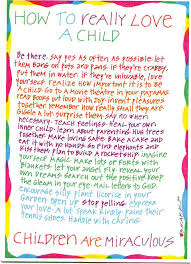 HOW TO really Love
A CHILD
Be there. say yes as often as possible. let
them bang on pots and pans. if they're crabby,
put them in water. if they're unlovable, love
yourself. realize how important it is to be
A child. Go to A movie theatre in your pajamas.
read books out loud with joy. invent pleasures
together. remember how really small they are.
Giggle A lot. surprise them. say no when
necessary. teach feelings. heal your own
inner child. learn about parenting. Hug trees
together. make loving safe. bake a cake and
eat it with no hands. Go find elephants and
kiss them. plan to build A rocketship. imagine
yourself magic. make lots of forts with
blankets. let your angel fly. reveal your
own dreams. search out the positive. keep
the gleam in your eye. mail letters to God.
encourage silly. plant licorice in your
Garden. open up. stop yelling. express
your love. A lot. speak kindly. paint their
tennis shoes. Handle with caring.
CHILDREN Are MIRACULOUS